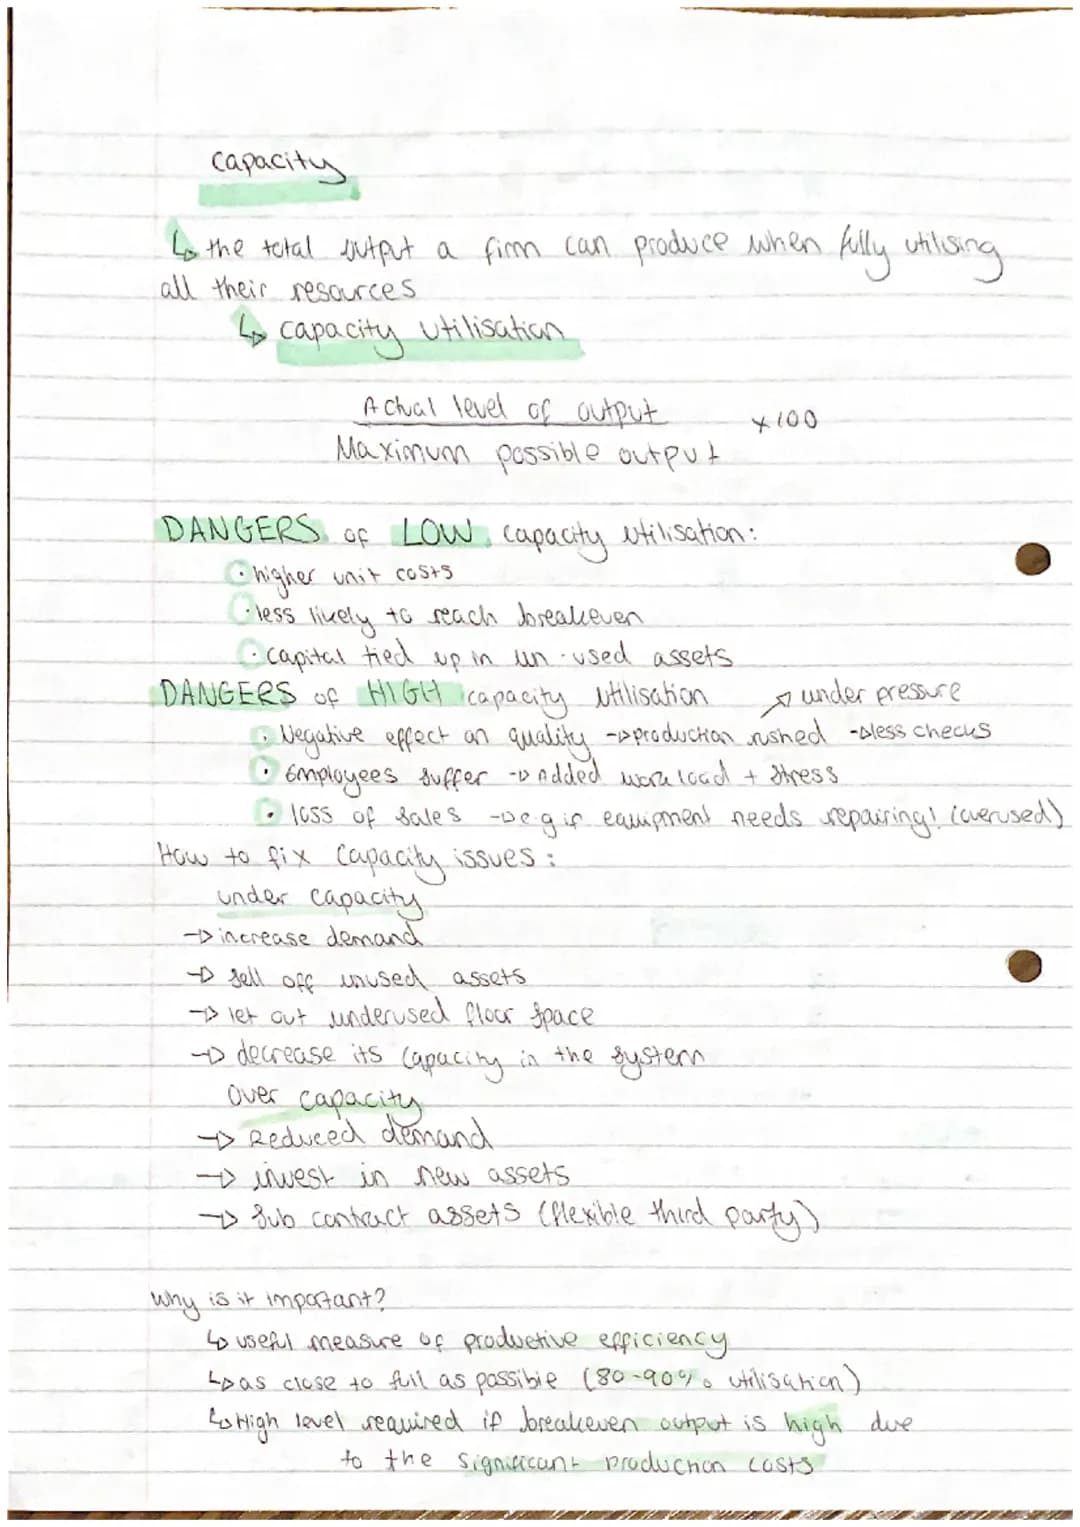 capacity
↳ the total output a firm can produce when fully utilising
all their resources
↳ capacity utilisation
Actual level of output
x100
Maximum possible output
DANGERS of LOW capacity utilisation:
• higher unit costs
• less likely to reach breakeven
• capital tied up in un-used assets
DANGERS of HIGH capacity utilisation ↗ under pressure
• Negative effect on quality → production rushed → less checks
• Employees suffer → Added workload + stress
• loss of sales → e.g if equipment needs repairing! (overused)
How to fix capacity issues:
under capacity
→ increase demand
→ sell off unused assets
→ let out underused floor space
→ decrease its capacity in the system
Over capacity
→ Reduced demand
→ invest in new assets
→ Sub contract assets (flexible third party)
Why is it important?
↳ useful measure of productive efficiency
↳ as close to full as possible (80-90% utilisation)
↳ High level required if breakeven output is high due
to the significant production costs